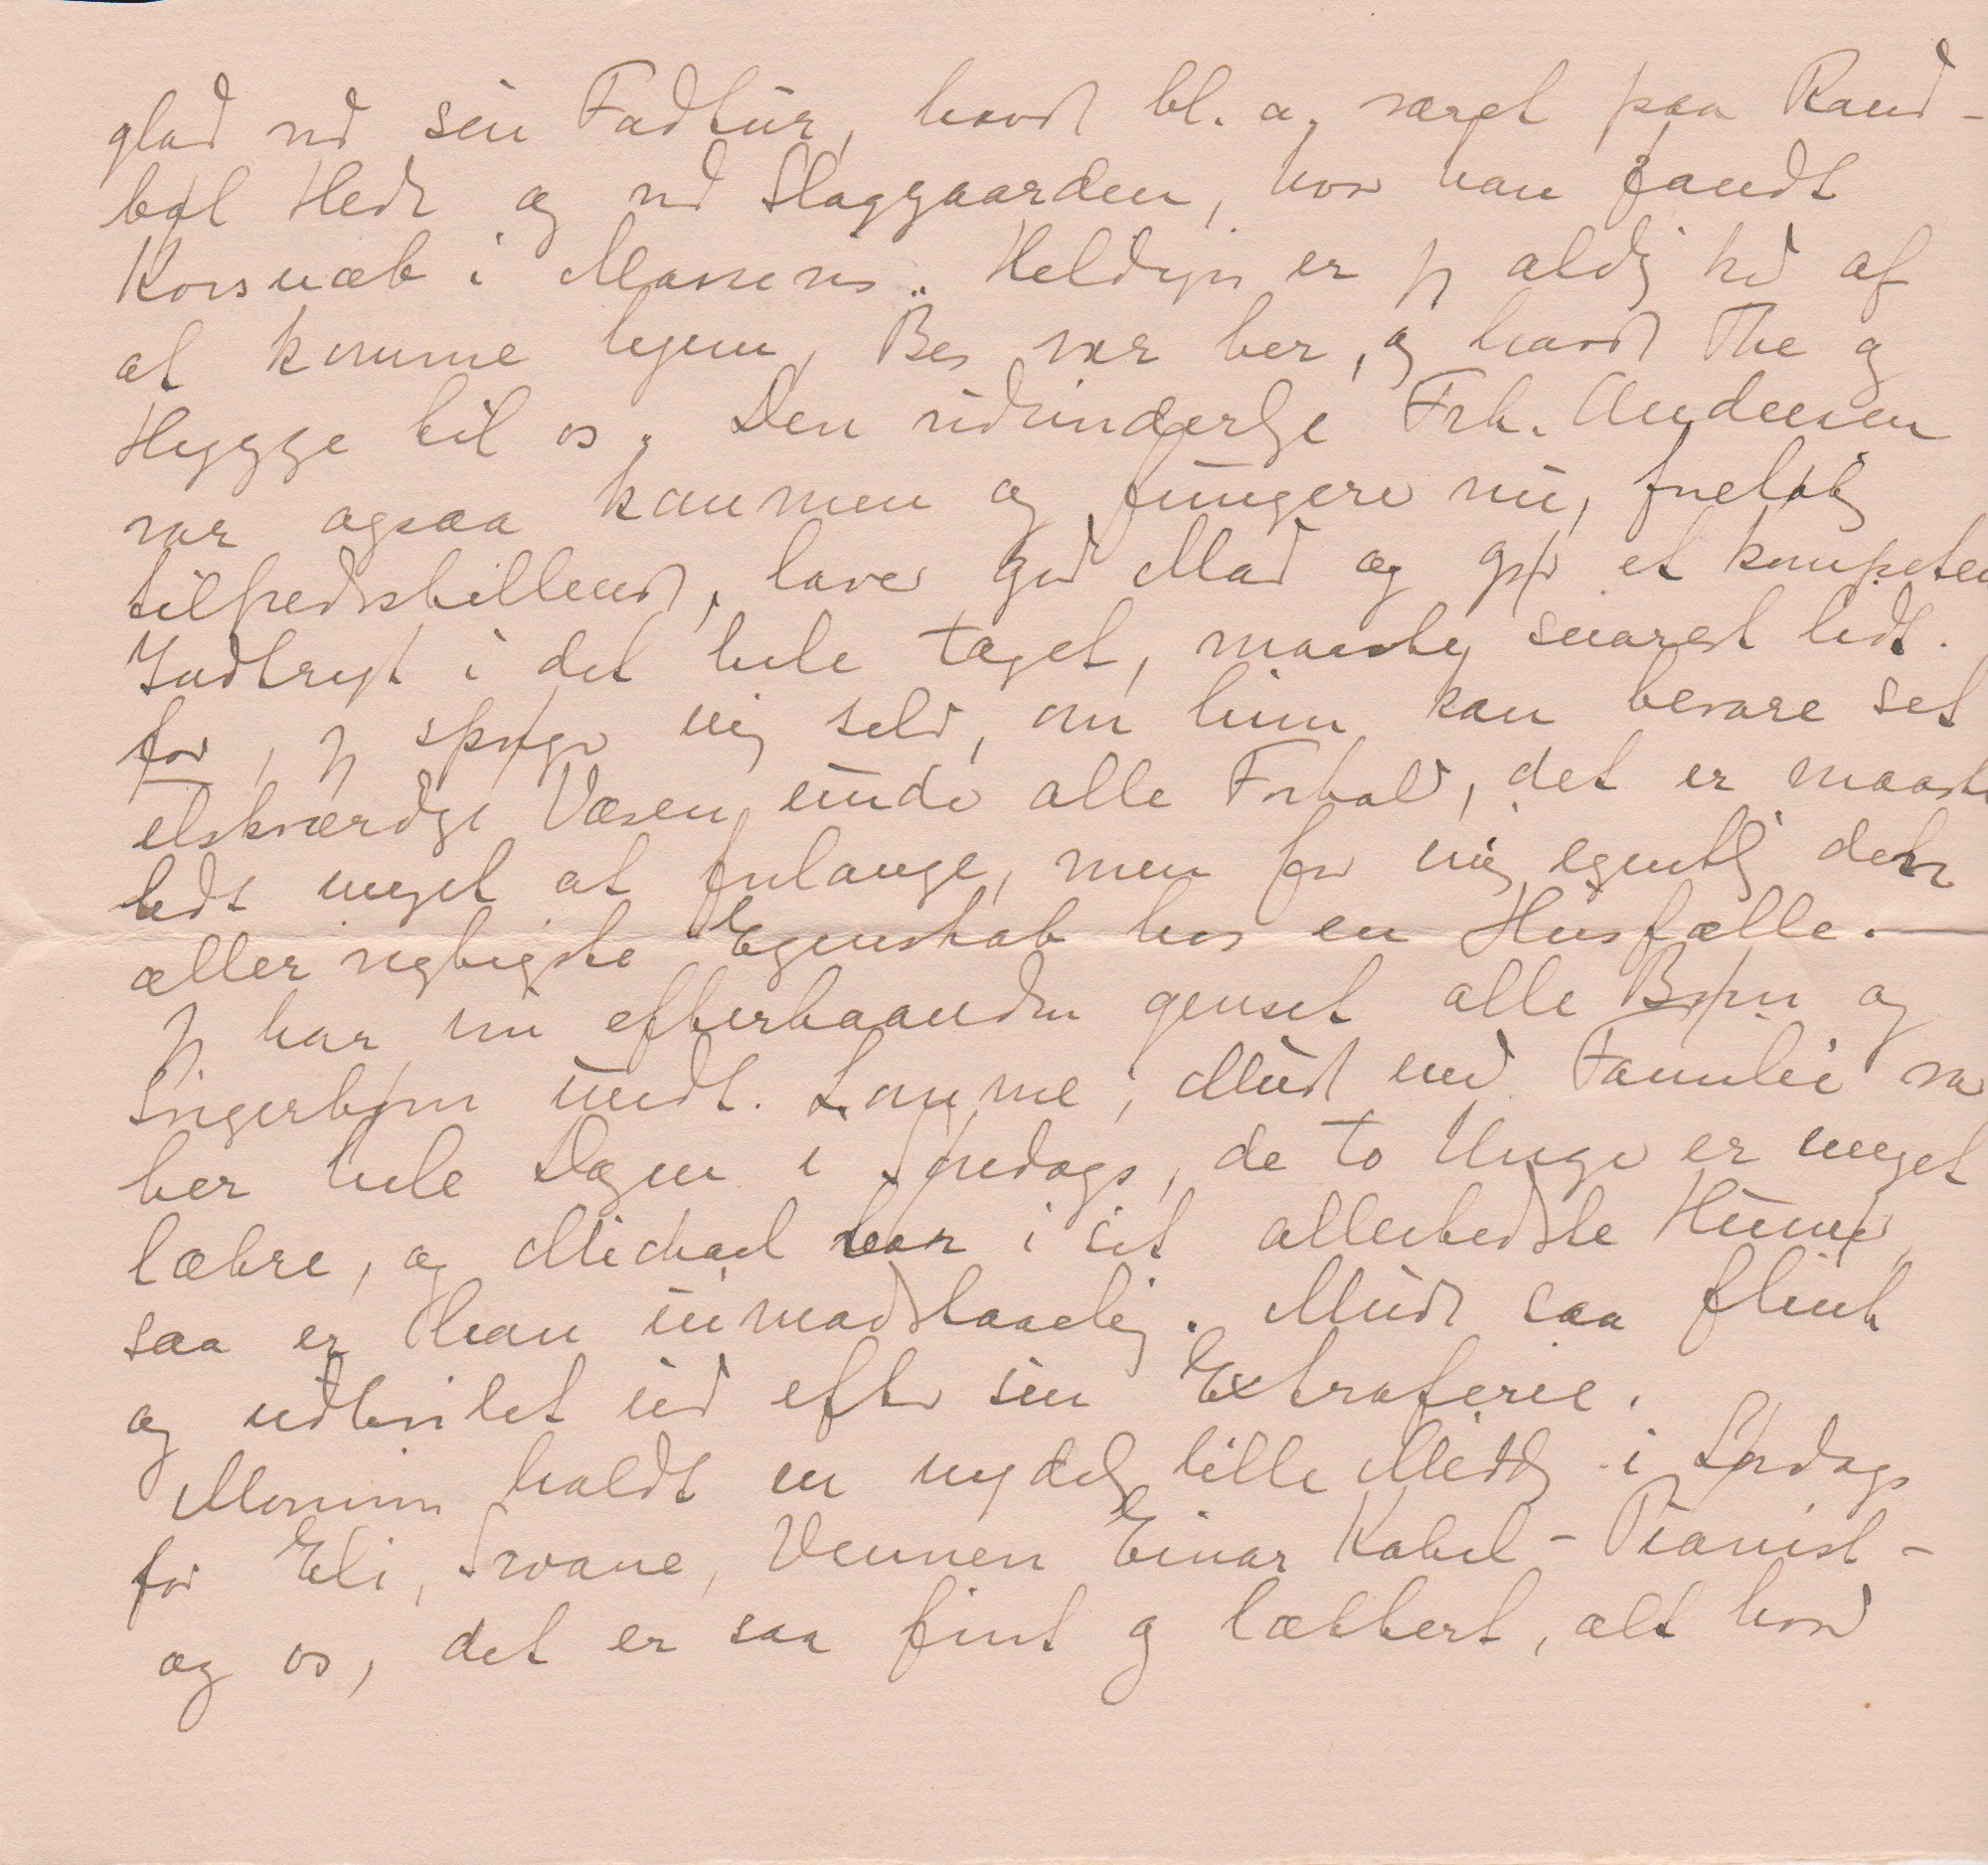 glad ved sin Fodtur, havde bl. a. været paa Rand-
bøl Hede og ved Slaggaarden, hvor han fandt
Korsnæb i Massevis. Heldigvis er jeg aldrig ked af
at komme hjem, Bes var her, og havde The og
Hygge til os. Den vidunderlige Frk. Andersen
var ogsaa kommen og fungerer nu, foreløbig
tilfredsstillende, laver god Mad og gør et kompeten
Indtryk i det hele taget, maaske snarest lidt
for, jeg spørger mig selv, om hun kan bevare set
elskværdige Væsen under alle Forhold, det er maaske
lidt meget at forlange, men for mig egentlig den
aller vigtigste Egenskab hos en Husfælle.
Jeg har nu efterhaanden genset alle Børn og
Svigerbørn undt. Lomme, Mude med Familie var
her hele Dagen i Søndags, de to Unger er meget
lækre, og Michael var i sit allerbedste Humør,
saa er han uimodstaaelig. Mude saa flink
og udhvilet ud efter sin Extraferie.
holdt en nydelig lille Middag i Lørdags
for Eli, Svane, Vennen Einar Kabel - Pianist -
og os, det er saa fint og lækkert, alt hvad